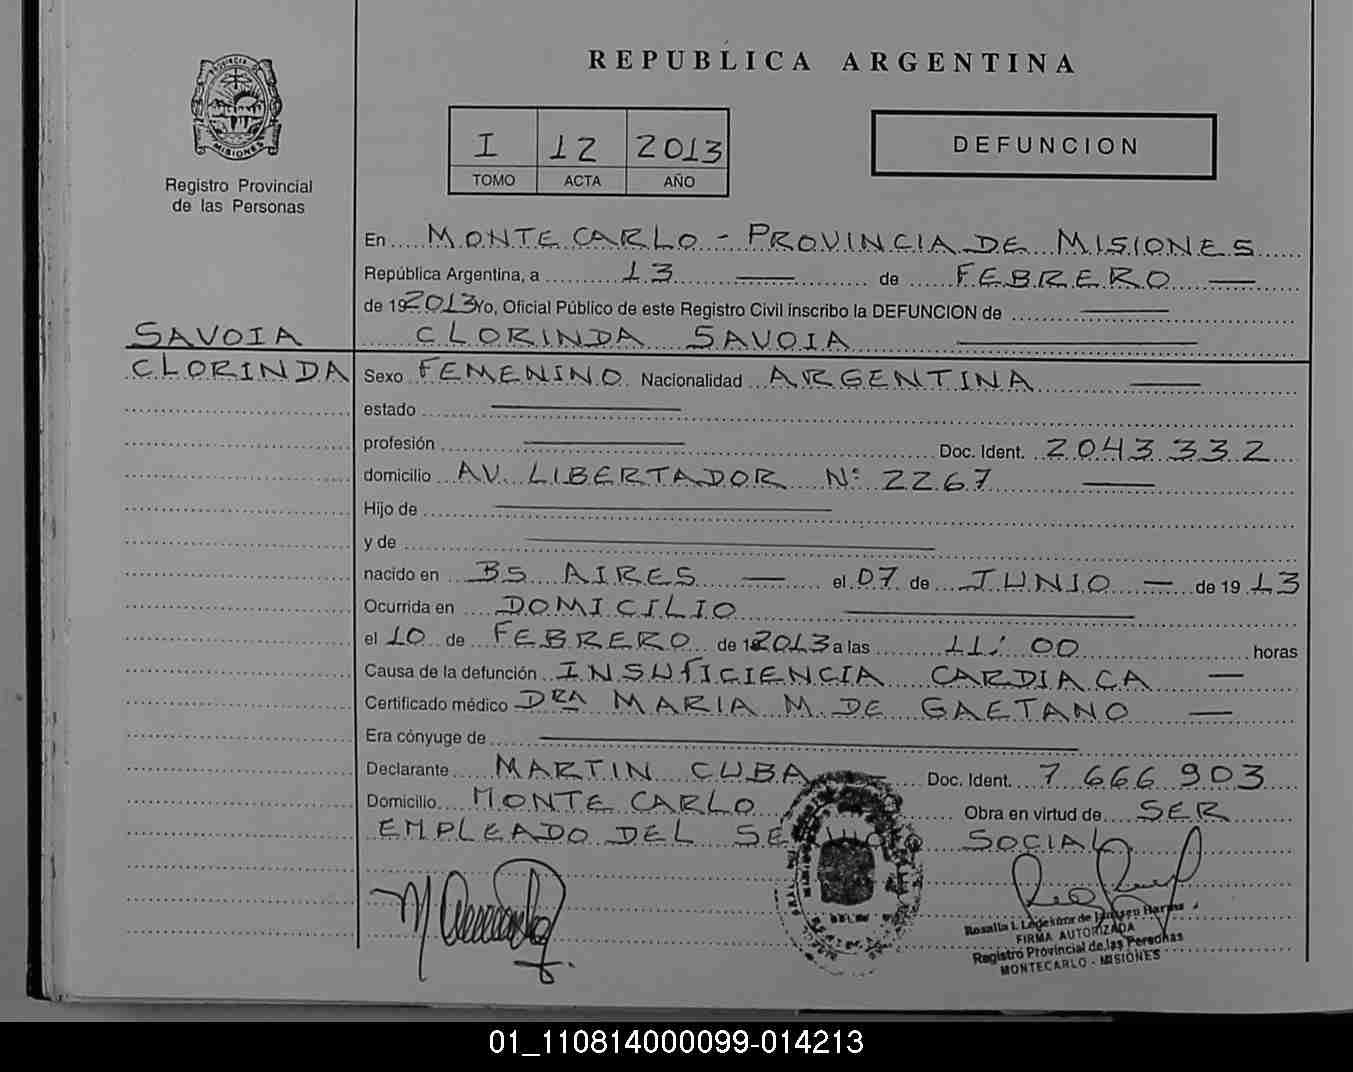 REPUBLICA ARGENTINA
PROVINCIA DE
MISIONES
Registro Provincial
de las Personas
I 12 2013
TOMO ACTA AÑO
DEFUNCION
En MONTECARLO - PROVINCIA DE MISIONES
República Argentina, a 13 — de FEBRERO —
de 192013 Yo, Oficial Público de este Registro Civil inscribo la DEFUNCION de —
CLORINDA SAVOIA —
SAVOIA
CLORINDA
Sexo FEMENINO Nacionalidad ARGENTINA —
estado —
profesión — Doc. Ident. 2043332
domicilio AV. LIBERTADOR Nº 2267 —
Hijo de —
y de —
nacido en BS AIRES — el 07 de JUNIO — de 19 13
Ocurrida en DOMICILIO —
el 10 de FEBRERO de 192013 a las 11:00 horas
Causa de la defunción INSUfICIENCIA CARDIACA —
Certificado médico DRA MARIA M. DE GAETANO —
Era cónyuge de —
Declarante MARTIN CUBA — Doc. Ident. 7 666 903
Domicilio MONTECARLO Obra en virtud de SER
EMPLEADO DEL SOCIAL
Rosalia I. Ledesma de Janssen Harms
FIRMA AUTORIZADA
Registro Provincial de las Personas
MONTECARLO - MISIONES
01_110814000099-014213